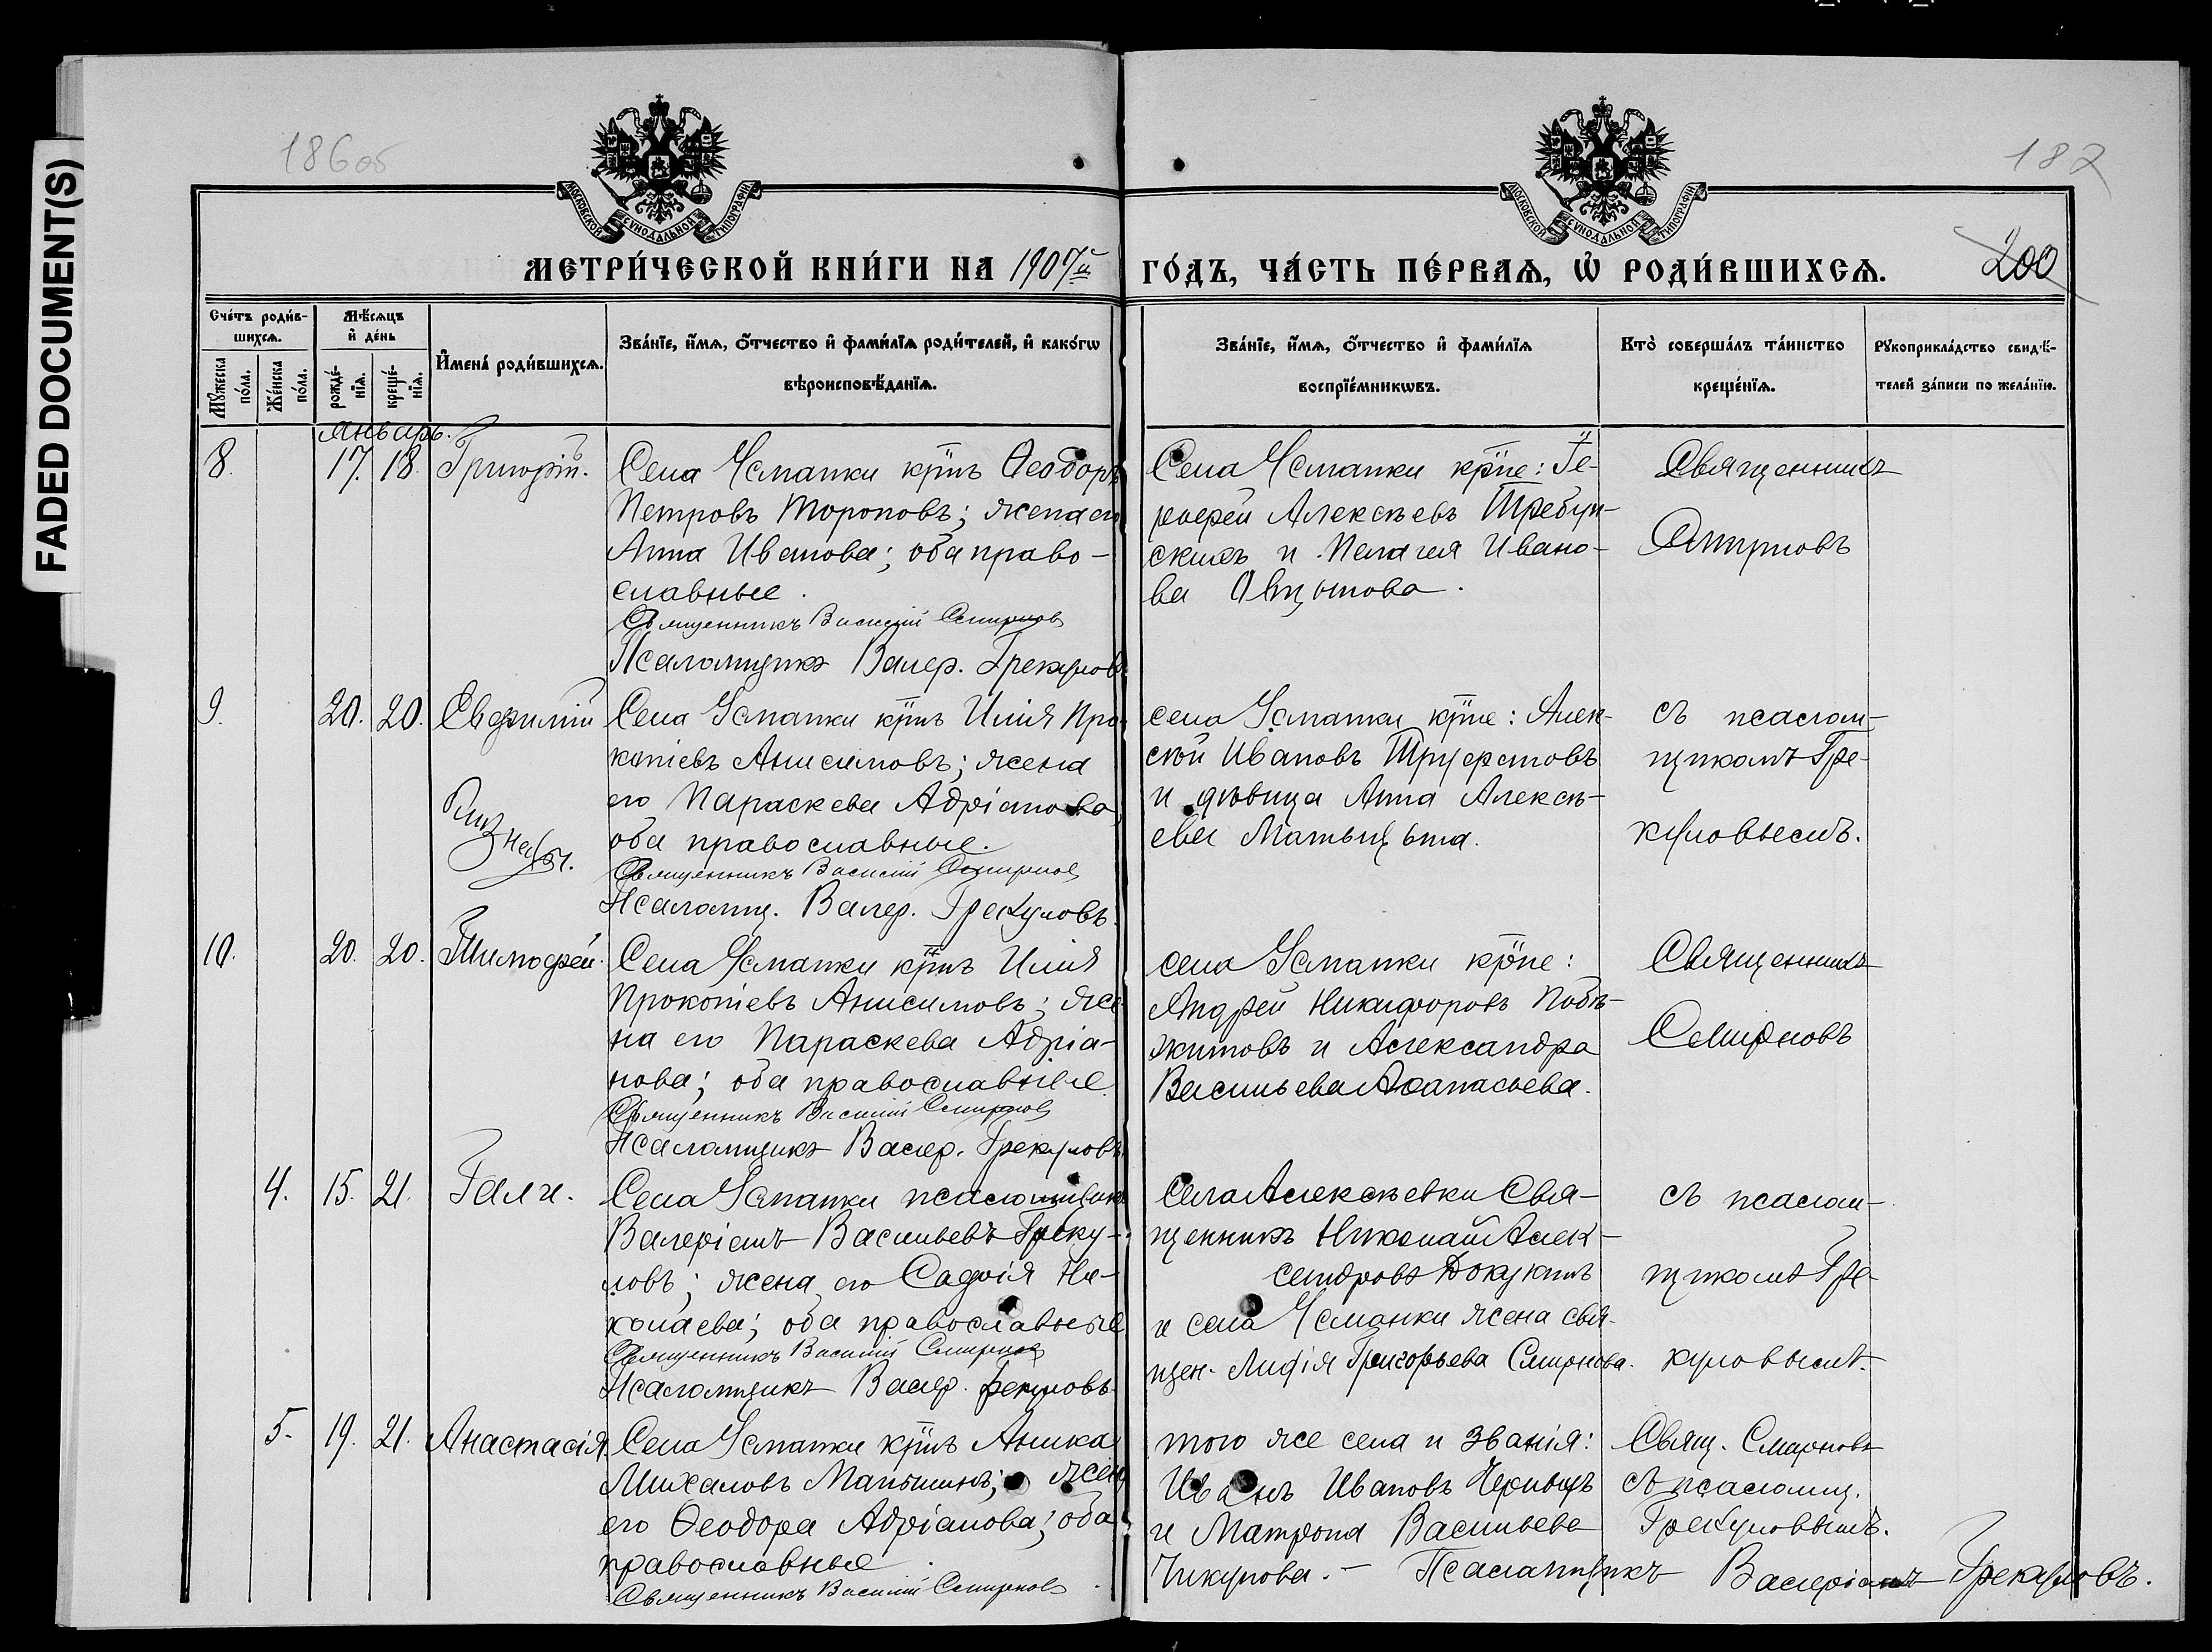 FADED DOCUMENT(S)
186об
182
200
МОСКОВСКОЙ СѴНОДАЛЬНОЙ ТИПОГРАФІИ
МОСКОВСКОЙ СѴНОДАЛЬНОЙ ТИПОГРАФІИ
МЕТРИ́ЧЕСКОЙ КНИ́ГИ НА 1907й
ГО́ДЪ, ЧА́СТЬ ПЕ́РВАѦ, Ѡ҆ РОДИ́ВШИХСѦ.
Сче́тъ роди́в-
шихсѧ.
Мꙋ́жеска по́ла.
Же́нска по́ла.
Мѣ́сѧцъ
и҆ де́нь
рожде́-
нїѧ.
креще́-
нїѧ.
И҆мена̀ роди́вшихсѧ.
Зва́нїе, и҆́мѧ, ѻ҆́тчество и҆ фами́лїѧ роди́телей, и҆ како́гѡ
вѣроисповѣ́данїѧ.
Зва́нїе, и҆́мѧ, ѻ҆́тчество и҆ фами́лїѧ
воспрїе́мникѡвъ.
Кто̀ соверша́лъ та́инство
креще́нїѧ.
Рꙋкоприкла́дство свидѣ́-
телей за́писи по жела́нїю.
Январь.
8. 17. 18. Григорій.
Села Усманки крнъ Ѳеодоръ
Петровъ Тороповъ; жена его
Анна Иванова; оба право-
славные.
Священникъ Василій Смирновъ
Псаломщикъ Валер. Грекуловъ
Села Усманки крне:
Алексѣевъ Требун-
скихъ и Пелагея Ивано-
ва
Священникъ
Смирновъ
9. 20. 20. Евфимій
Близнецы.
Села Усманки крнъ Илія Про-
копіевъ Анисимовъ; жена
его Параскева Адріанова,
оба православные.
Священникъ Василій Смирновъ
Псаломщ. Валер. Грекуловъ.
села Усманки крне: Алек-
сѣй Ивановъ
и дѣвица Анна Алексѣ-
ева
съ псалом-
щикомъ Гре-
куловымъ.
10. 20. 20. Тимофей.
Села Усманки крнъ Илія
Прокопіевъ Анисимовъ; же-
на его Параскева Адріа-
нова; оба православные
Священникъ Василій Смирновъ
Псаломщикъ Валер. Грекуловъ
села Усманки крне:
Андрей Никифоровъ Побѣ-
житовъ и Александра
Васильева Аѳанасьева.
Священникъ
Смирновъ
4. 15. 21. Галя.
Села Усманки псаломщикъ
Валеріанъ Васильевъ Греку-
ловъ; жена его Софія Ни-
колаева; оба православные
Священникъ Василій Смирновъ
Псаломщикъ Валер. Грекуловъ
Села Алексѣевки Свя-
щенникъ Николай Алек-
сандровъ Докукинъ
и села Усманки жена свя-
щен. Лидія Григорьева Смирнова.
съ псалом-
щикомъ Гре-
куловымъ.
5. 19. 21. Анастасія.
Села Усманки крнъ Аника
Михаловъ Маньшинъ; жена
его Ѳеодора Адріанова; оба
православные.
Священникъ Василій Смирновъ
того же села и званія:
Иванъ Ивановъ Черныхъ
и Матрона Васильева
Чикунова. – Псаломщикъ Валеріанъ Грекуловъ.
Свящ. Смирновъ
съ псаломщ.
Грекуловымъ.